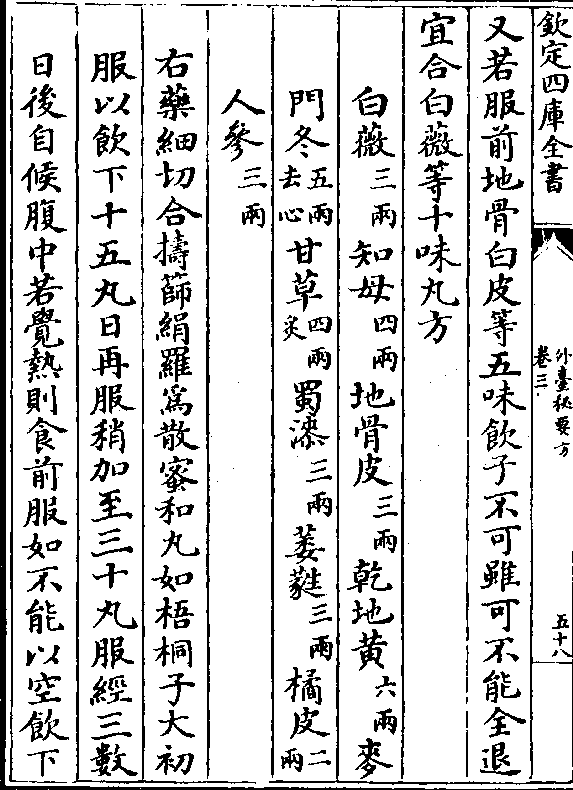 欽定四庫全書
外臺秘要方
卷三
五十八
又若服前地骨白皮等五味飲子不可雖可不能全退
宜合白薇等十味丸方
白薇三兩知母四兩地骨皮三兩乾地黄六兩麥
門冬五兩去心甘草四兩炙蜀漆三兩萎蕤三兩橘皮二兩
人參三兩
右藥細切合擣篩絹羅為散蜜和丸如梧桐子大初
服以飲下十五丸日再服稍加至三十丸服經三數
日後自候腹中若覺熱則食前服如不能以空飲下